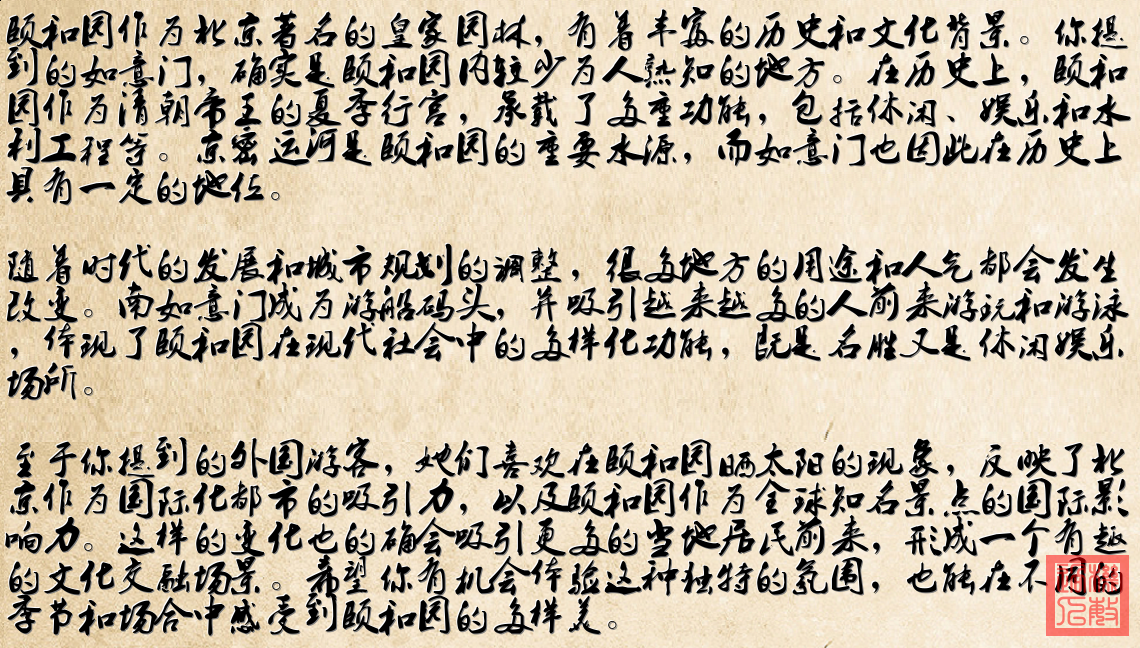 颐和园作为北京著名的皇家园林，有着丰富的历史和文化背景。你提
到的如意门，确实是颐和园内较少为人熟知的地方。在历史上，颐和
园作为清朝帝王的夏季行宫，承载了多重功能，包括休闲、娱乐和水
利工程等。京密运河是颐和园的重要水源，而如意门也因此在历史上
具有一定的地位。
随着时代的发展和城市规划的调整，很多地方的用途和人气都会发生
改变。南如意门成为游船码头，并吸引越来越多的人前来游玩和游泳
，体现了颐和园在现代社会中的多样化功能，既是名胜又是休闲娱乐
场所。
至于你提到的外国游客，她们喜欢在颐和园晒太阳的现象，反映了北
京作为国际化都市的吸引力，以及颐和园作为全球知名景点的国际影
响力。这样的变化也的确会吸引更多的当地居民前来，形成一个有趣
的文化交融场景。希望你有机会体验这种独特的氛围，也能在不同的
季节和场合中感受到颐和园的多样美。